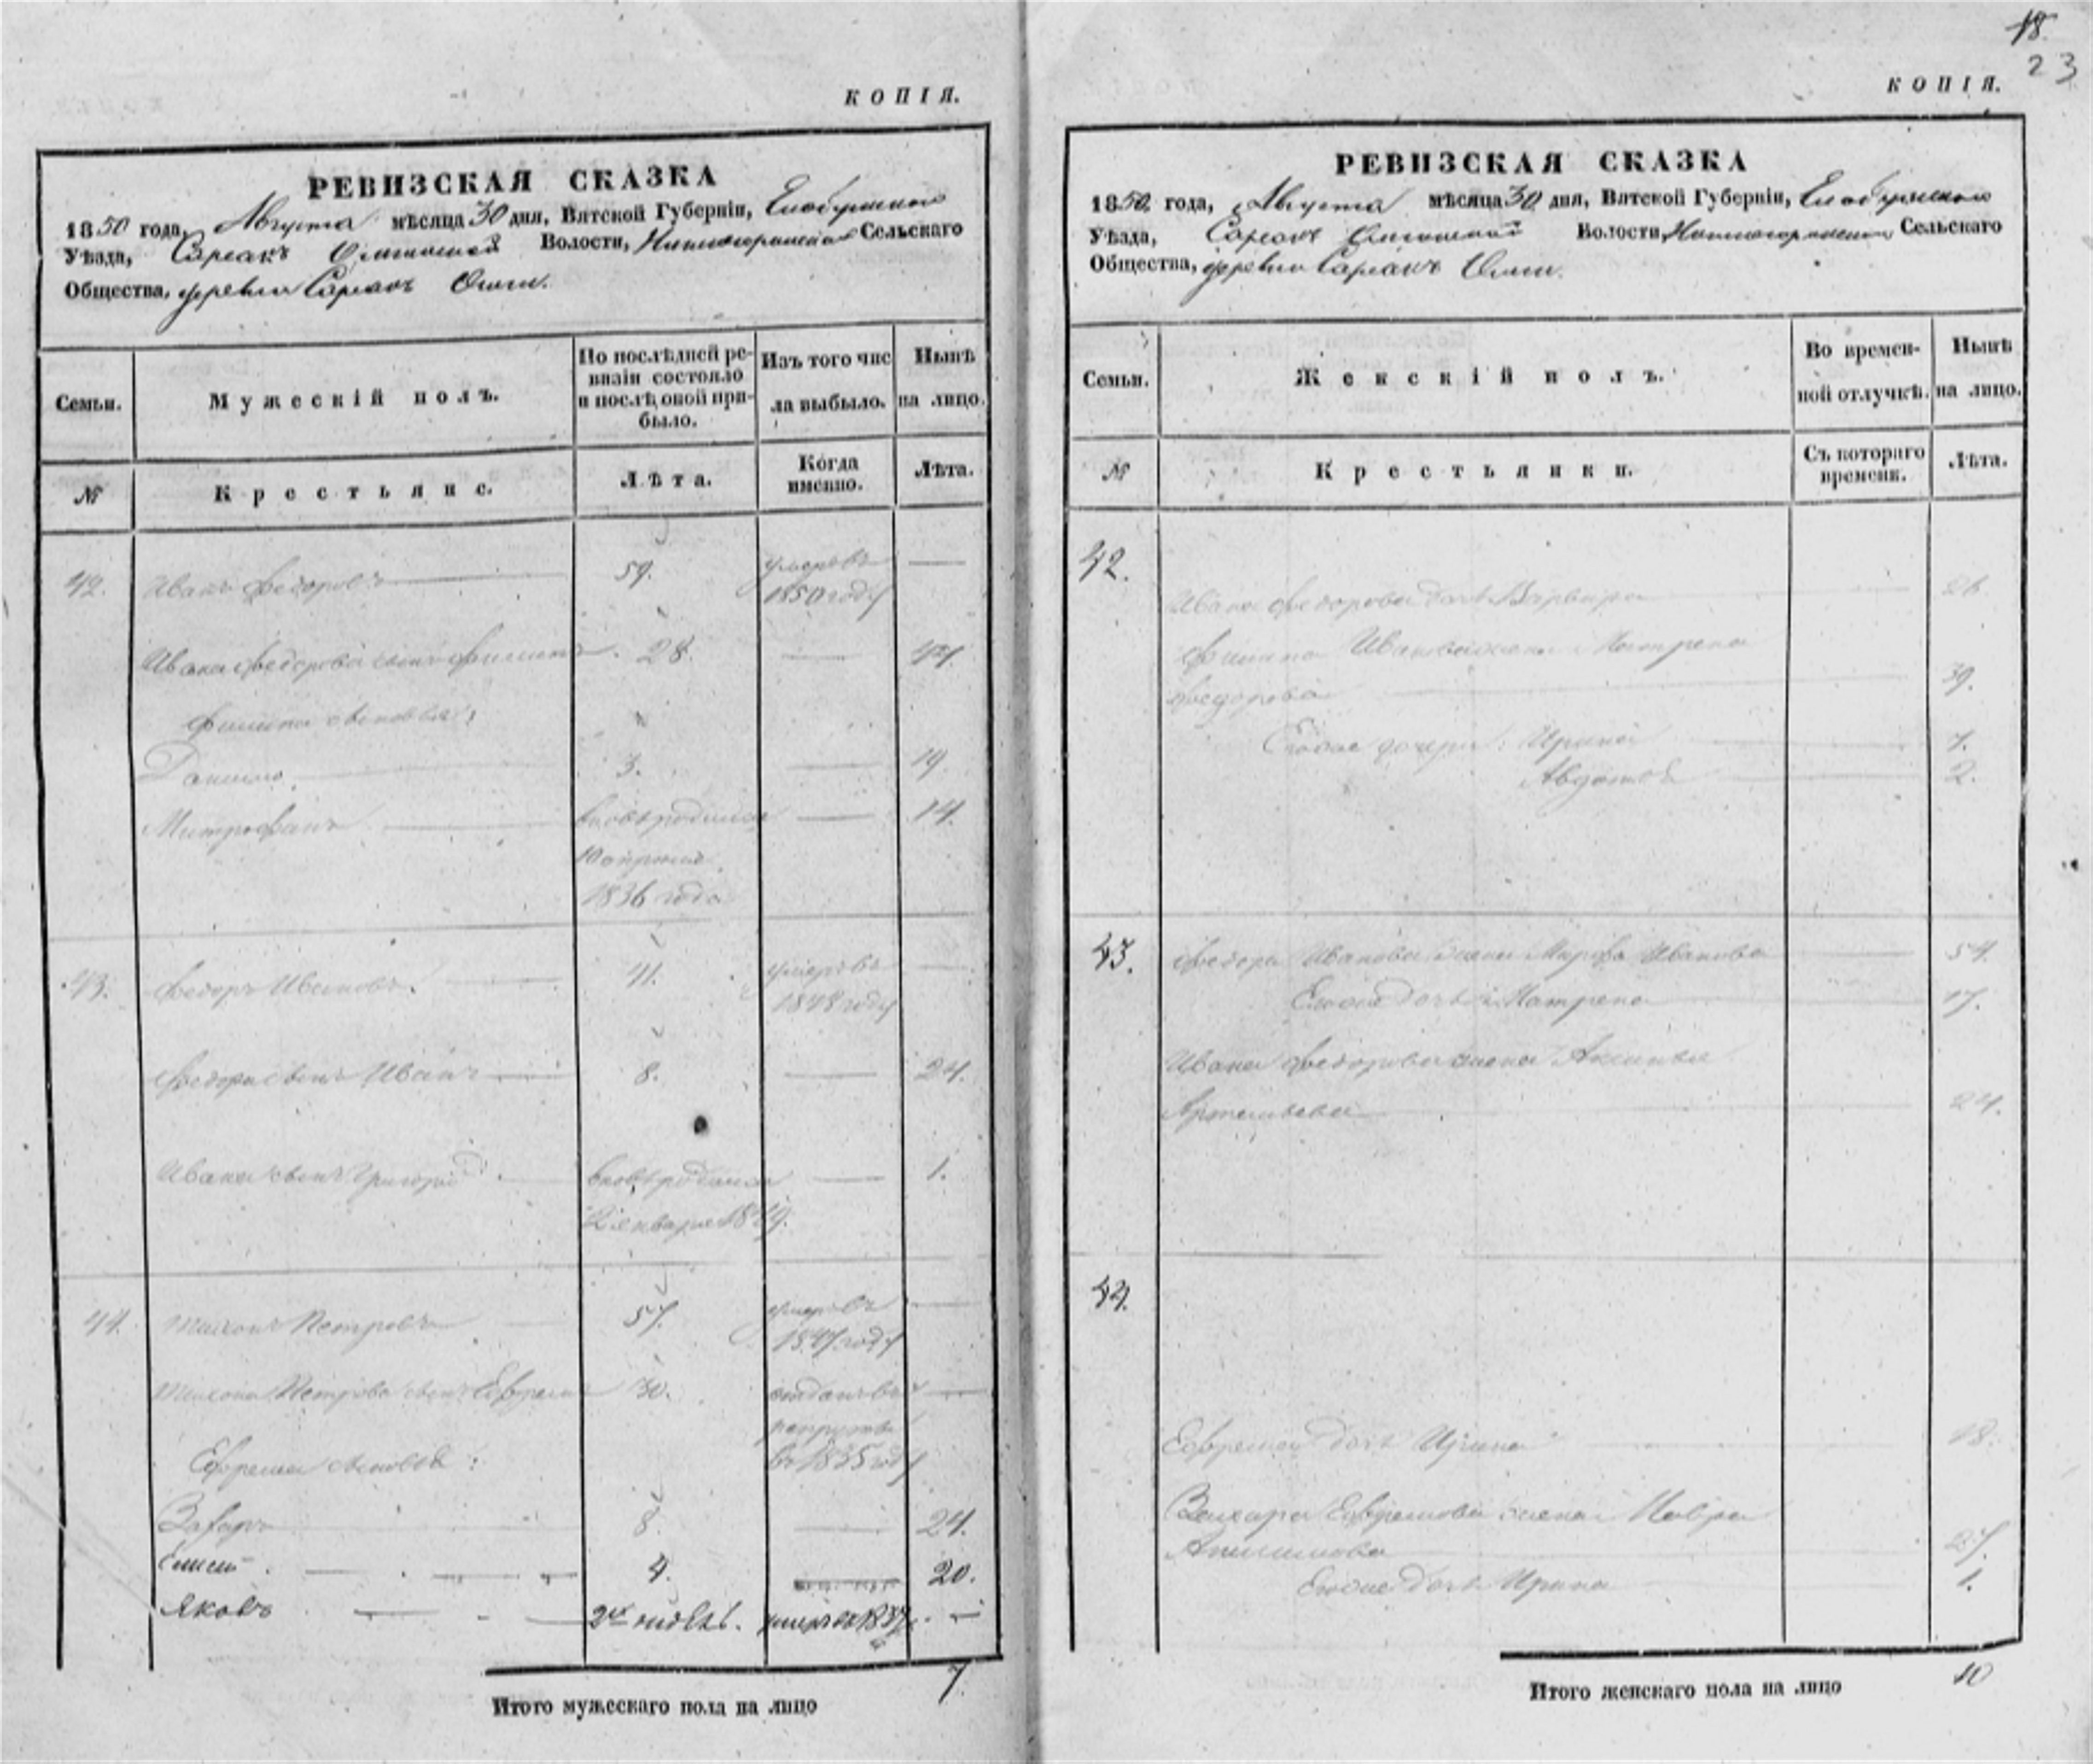 КОПІЯ.
РЕВИЗСКАЯ СКАЗКА
1850 года, Августа мѣсяца 30 дня, Вятской Губерніи, Елабужскаго
Уѣзда, Волости, Сельскаго
Общества, деревни Сарсакъ Омги.
Семьи.
Мужескій полъ.
По послѣдней ре-
визіи состояло
и послѣ оной при-
было.
Изъ того чис
ла выбыло.
Нынѣ
на лицо.
№
Крестьяне.
Лѣта.
Когда
именно.
Лѣта.
42. Иванъ Федоровъ 59. умеръ въ —
1850 году
Ивана Федорова сынъ Филипъ 28. — 44.
Филипа сыновья:
Данило 3. — 19.
Митрофанъ вновь родился — 14.
1836 года
43. Федоръ Ивановъ. 41. умеръ въ —
1848 году
Федора сынъ Иванъ 8. — 24.
Ивана сынъ Григорій вновь родился — 1.
Января 1849.
44. Тихонъ Петровъ 57. умеръ въ —
1847 году
Тихона Петрова сынъ Ефремъ 30. отданъ въ —
рекруты
въ 1835 году
Ефрема сыновья:
Захаръ 8. — 24.
Елисей 4. — 20.
Яковъ 2хъ недѣль. умеръ въ 1837 —
7.
Итого мужескаго пола на лицо
18.
23
КОПІЯ.
РЕВИЗСКАЯ СКАЗКА
1850 года, Августа мѣсяца 30 дня, Вятской Губерніи, Елабужскаго
Уѣзда, Волости, Сельскаго
Общества, деревни Сарсакъ Омги.
Семьи.
Женскій полъ.
Во времен-
ной отлучкѣ.
Нынѣ
на лицо.
№
Крестьянки.
Съ котораго
времени.
Лѣта.
42.
Ивана Федорова дочь Варвара 26.
Филипа Иванова жена Матрена
Федорова 39.
Ево же дочери: Ирина 7.
Авдотья 2.
43. Федора Иванова жена Марфа Иванова 54.
Ево же дочь Матрена 17.
Ивана Федорова жена Аксинья
Артемьева 24.
44.
Ефрема дочь Ирина 18.
Захара Ефремова жена Мавра
27.
Ево же дочь Ирина 1.
10
Итого женскаго пола на лицо